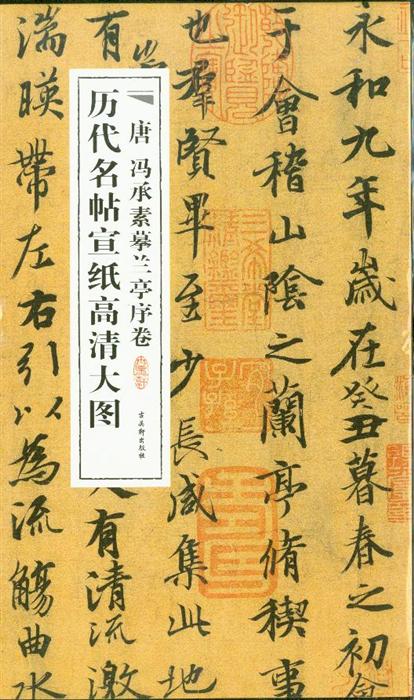 永和九年歲在癸丑暮春之初會
于會稽山陰之蘭亭脩稧事
也羣賢畢至少長咸集此地
有
又有清流激
湍暎帶左右引以為流觴曲水
唐 冯承素摹兰亭序卷
历代名帖宣纸高清大图
古吴轩出版社